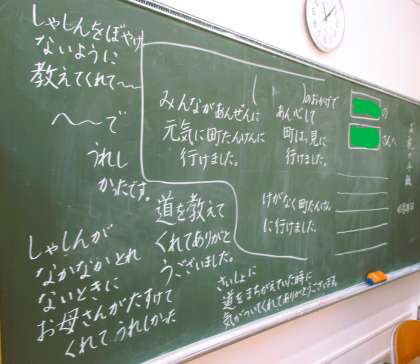 しゃしんをぼやけ
ないように
教えてくれて〜〜
〜〜で
うれし
かったです。
みんながあんぜんに
元気に町たんけんに
行けました。
(　　)のおかげで
あん心して
町はっ見に
行けました。
の
さんへ
けがなく町たんけん
に行けました。
道を教えて
くれてありがと
うございました。
しゃしんが
なかなかとれ
ないときに
お母さんがたすけて
くれてうれしかった
さいしょに
道をまちがえていた時に
気がついてくれてありがとうございます。